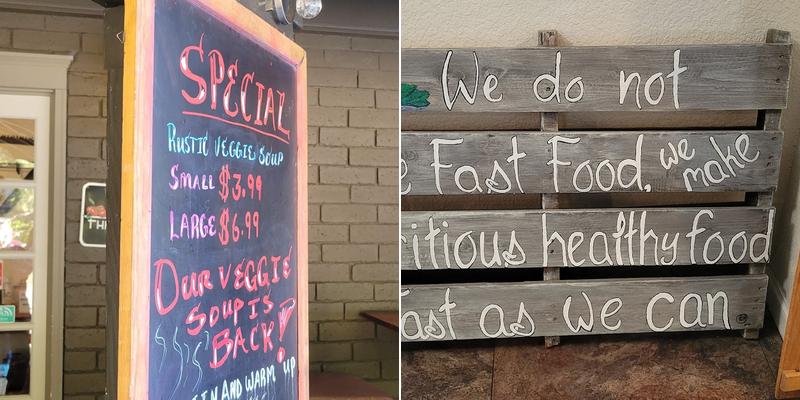 SPECIAL
RUSTIC VEGGIE SOUP
SMALL $3.99
LARGE $6.99
OUR VEGGIE
SOUP IS
BACK!
IN AND WARM UP
We do not
Fast Food, we make
healthy food
as we can